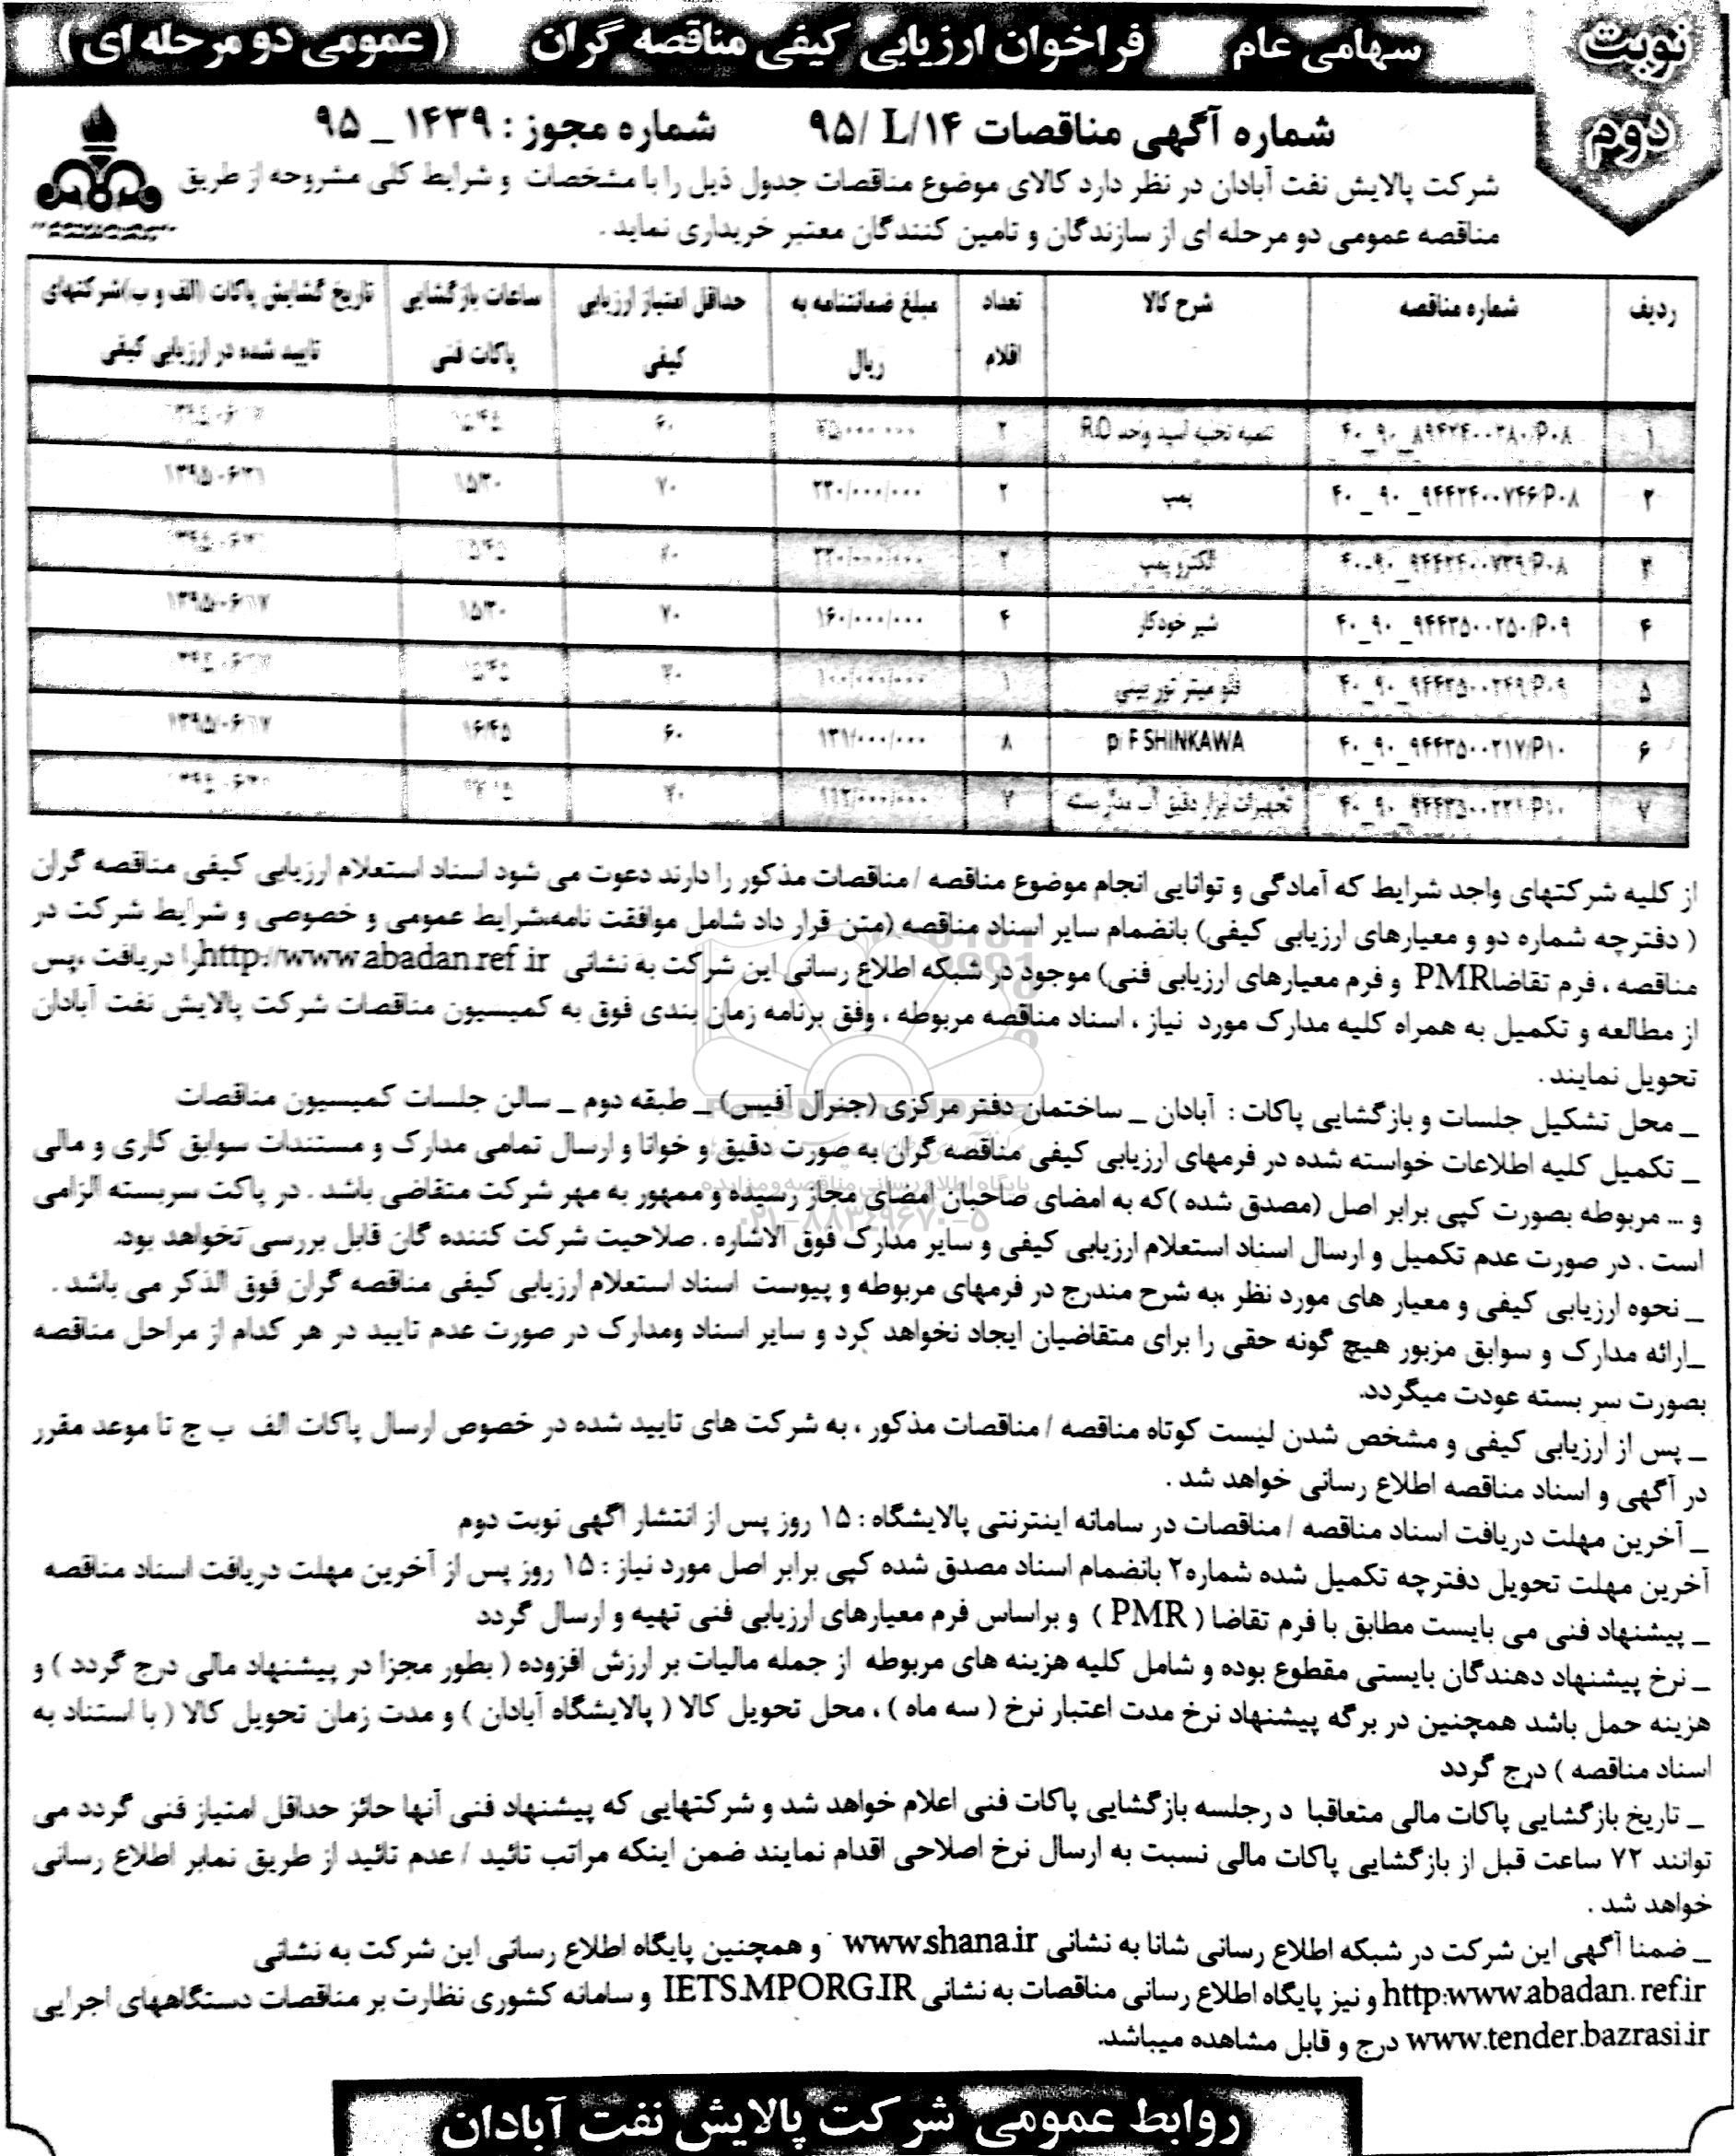 نوبت
دوم
سهامی عام فراخوان ارزیابی کیفی مناقصه گران (عمومی دو مرحله ای)
شماره آگهی مناقصات ۹۵/ L/۱۴ شماره مجوز : ۱۴۳۹ _ ۹۵
شرکت پالایش نفت آبادان در نظر دارد کالای موضوع مناقصات جدول ذیل را با مشخصات و شرایط کلی مشروحه از طریق
مناقصه عمومی دو مرحله ای از سازندگان و تامین کنندگان معتبر خریداری نماید .
ردیف شماره مناقصه شرح کالا تعداد اقلام مبلغ ضمانتنامه به ریال حداقل امتیاز ارزیابی کیفی ساعات بازگشایی پاکات فنی تاریخ گشایش پاکات (الف و ب)شرکتهای تایید شده در ارزیابی کیفی
۱ واحد R.O ۲ ۶۰
۲ ۴۰_ ۹۰_ ۹۴۴۲۴۰۰۷۴۶/P۰۸ پمپ ۲ ۲۳۰/۰۰۰/۰۰۰ ۷۰ ۱۵/۳۰
۳ الکترو پمپ ۲
۴ ۴۰_ ۹۰_ ۹۴۴۳۵۰۰۲۵۰/P۰۹ شیر خودکار ۴ ۱۶۰/۰۰۰/۰۰۰ ۷۰ ۱۵/۳۰ ۱۳۹۵/۰۶/۱۷
۵ فلو میتر توربینی ۱ ۱۰۰/۰۰۰/۰۰۰
۶ ۴۰_ ۹۰_ ۹۴۴۳۵۰۰۲۱۷/P۱۰ p/F SHINKAWA ۸ ۱۳۱/۰۰۰/۰۰۰ ۶۰ ۱۶/۴۵ ۱۳۹۵/۰۶/۱۷
۷ تجهیزات ابزار دقیق
از کلیه شرکتهای واجد شرایط که آمادگی و توانایی انجام موضوع مناقصه / مناقصات مذکور را دارند دعوت می شود اسناد استعلام ارزیابی کیفی مناقصه گران
( دفترچه شماره دو و معیارهای ارزیابی کیفی) بانضمام سایر اسناد مناقصه (متن قرار داد شامل موافقت نامه،شرایط عمومی و خصوصی و شرایط شرکت در
مناقصه ، فرم تقاضاPMR و فرم معیارهای ارزیابی فنی) موجود در شبکه اطلاع رسانی این شرکت به نشانی http://www.abadan.ref.ir را دریافت ،پس
از مطالعه و تکمیل به همراه کلیه مدارک مورد نیاز ، اسناد مناقصه مربوطه ، وفق برنامه زمان بندی فوق به کمیسیون مناقصات شرکت پالایش نفت آبادان
تحویل نمایند .
_ محل تشکیل جلسات و بازگشایی پاکات : آبادان _ ساختمان دفتر مرکزی (جنرال آفیس) _ طبقه دوم _ سالن جلسات کمیسیون مناقصات
_ تکمیل کلیه اطلاعات خواسته شده در فرمهای ارزیابی کیفی مناقصه گران به صورت دقیق و خوانا و ارسال تمامی مدارک و مستندات سوابق کاری و مالی
پایگاه اطلاع رسانی مناقصه و مزایده
و ... مربوطه بصورت کپی برابر اصل (مصدق شده )که به امضای صاحبان امضای مجاز رسیده و ممهور به مهر شرکت متقاضی باشد . در پاکت سربسته الزامی
۰۲۱-۸۸۳۴۹۶۷۰-۵
است . در صورت عدم تکمیل و ارسال اسناد استعلام ارزیابی کیفی و سایر مدارک فوق الاشاره . صلاحیت شرکت کننده گان قابل بررسی نخواهد بود.
_ نحوه ارزیابی کیفی و معیار های مورد نظر ،به شرح مندرج در فرمهای مربوطه و پیوست اسناد استعلام ارزیابی کیفی مناقصه گران فوق الذکر می باشد .
_ارائه مدارک و سوابق مزبور هیچ گونه حقی را برای متقاضیان ایجاد نخواهد کرد و سایر اسناد ومدارک در صورت عدم تایید در هر کدام از مراحل مناقصه
بصورت سر بسته عودت میگردد.
_ پس از ارزیابی کیفی و مشخص شدن لیست کوتاه مناقصه / مناقصات مذکور ، به شرکت های تایید شده در خصوص ارسال پاکات الف ب ج تا موعد مقرر
در آگهی و اسناد مناقصه اطلاع رسانی خواهد شد .
_ آخرین مهلت دریافت اسناد مناقصه / مناقصات در سامانه اینترنتی پالایشگاه : ۱۵ روز پس از انتشار اگهی نوبت دوم
آخرین مهلت تحویل دفترچه تکمیل شده شماره۲ بانضمام اسناد مصدق شده کپی برابر اصل مورد نیاز : ۱۵ روز پس از آخرین مهلت دریافت اسناد مناقصه
_ پیشنهاد فنی می بایست مطابق با فرم تقاضا ( PMR ) و براساس فرم معیارهای ارزیابی فنی تهیه و ارسال گردد
_ نرخ پیشنهاد دهندگان بایستی مقطوع بوده و شامل کلیه هزینه های مربوطه از جمله مالیات بر ارزش افزوده ( بطور مجزا در پیشنهاد مالی درج گردد ) و
هزینه حمل باشد همچنین در برگه پیشنهاد نرخ مدت اعتبار نرخ ( سه ماه ) ، محل تحویل کالا ( پالایشگاه آبادان ) و مدت زمان تحویل کالا ( با استناد به
اسناد مناقصه ) درج گردد
_ تاریخ بازگشایی پاکات مالی متعاقبا درجلسه بازگشایی پاکات فنی اعلام خواهد شد و شرکتهایی که پیشنهاد فنی آنها حائز حداقل امتیاز فنی گردد می
توانند ۷۲ ساعت قبل از بازگشایی پاکات مالی نسبت به ارسال نرخ اصلاحی اقدام نمایند ضمن اینکه مراتب تائید / عدم تائید از طریق نمابر اطلاع رسانی
خواهد شد .
_ ضمنا آگهی این شرکت در شبکه اطلاع رسانی شانا به نشانی www.shana.ir و همچنین پایگاه اطلاع رسانی این شرکت به نشانی
http:www.abadan.ref.ir و نیز پایگاه اطلاع رسانی مناقصات به نشانی IETS.MPORG.IR و سامانه کشوری نظارت بر مناقصات دستگاههای اجرایی
www.tender.bazrasi.ir درج و قابل مشاهده میباشد.
روابط عمومی شرکت پالایش نفت آبادان